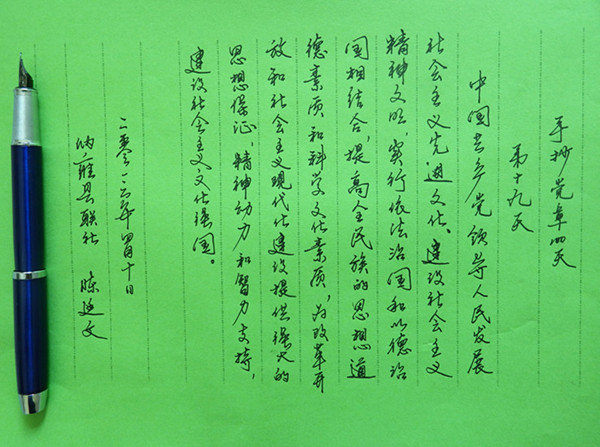 手抄党章百天
第十九天
中国共产党领导人民发展
社会主义先进文化。建设社会主义
精神文明,实行依法治国和以德治
国相结合,提高全民族的思想道
德素质和科学文化素质,为改革开
放和社会主义现代化建设提供强大的
思想保证、精神动力和智力支持,
建设社会主义文化强国。
二零一六年四月十日
纳雍县联社 陈廷文